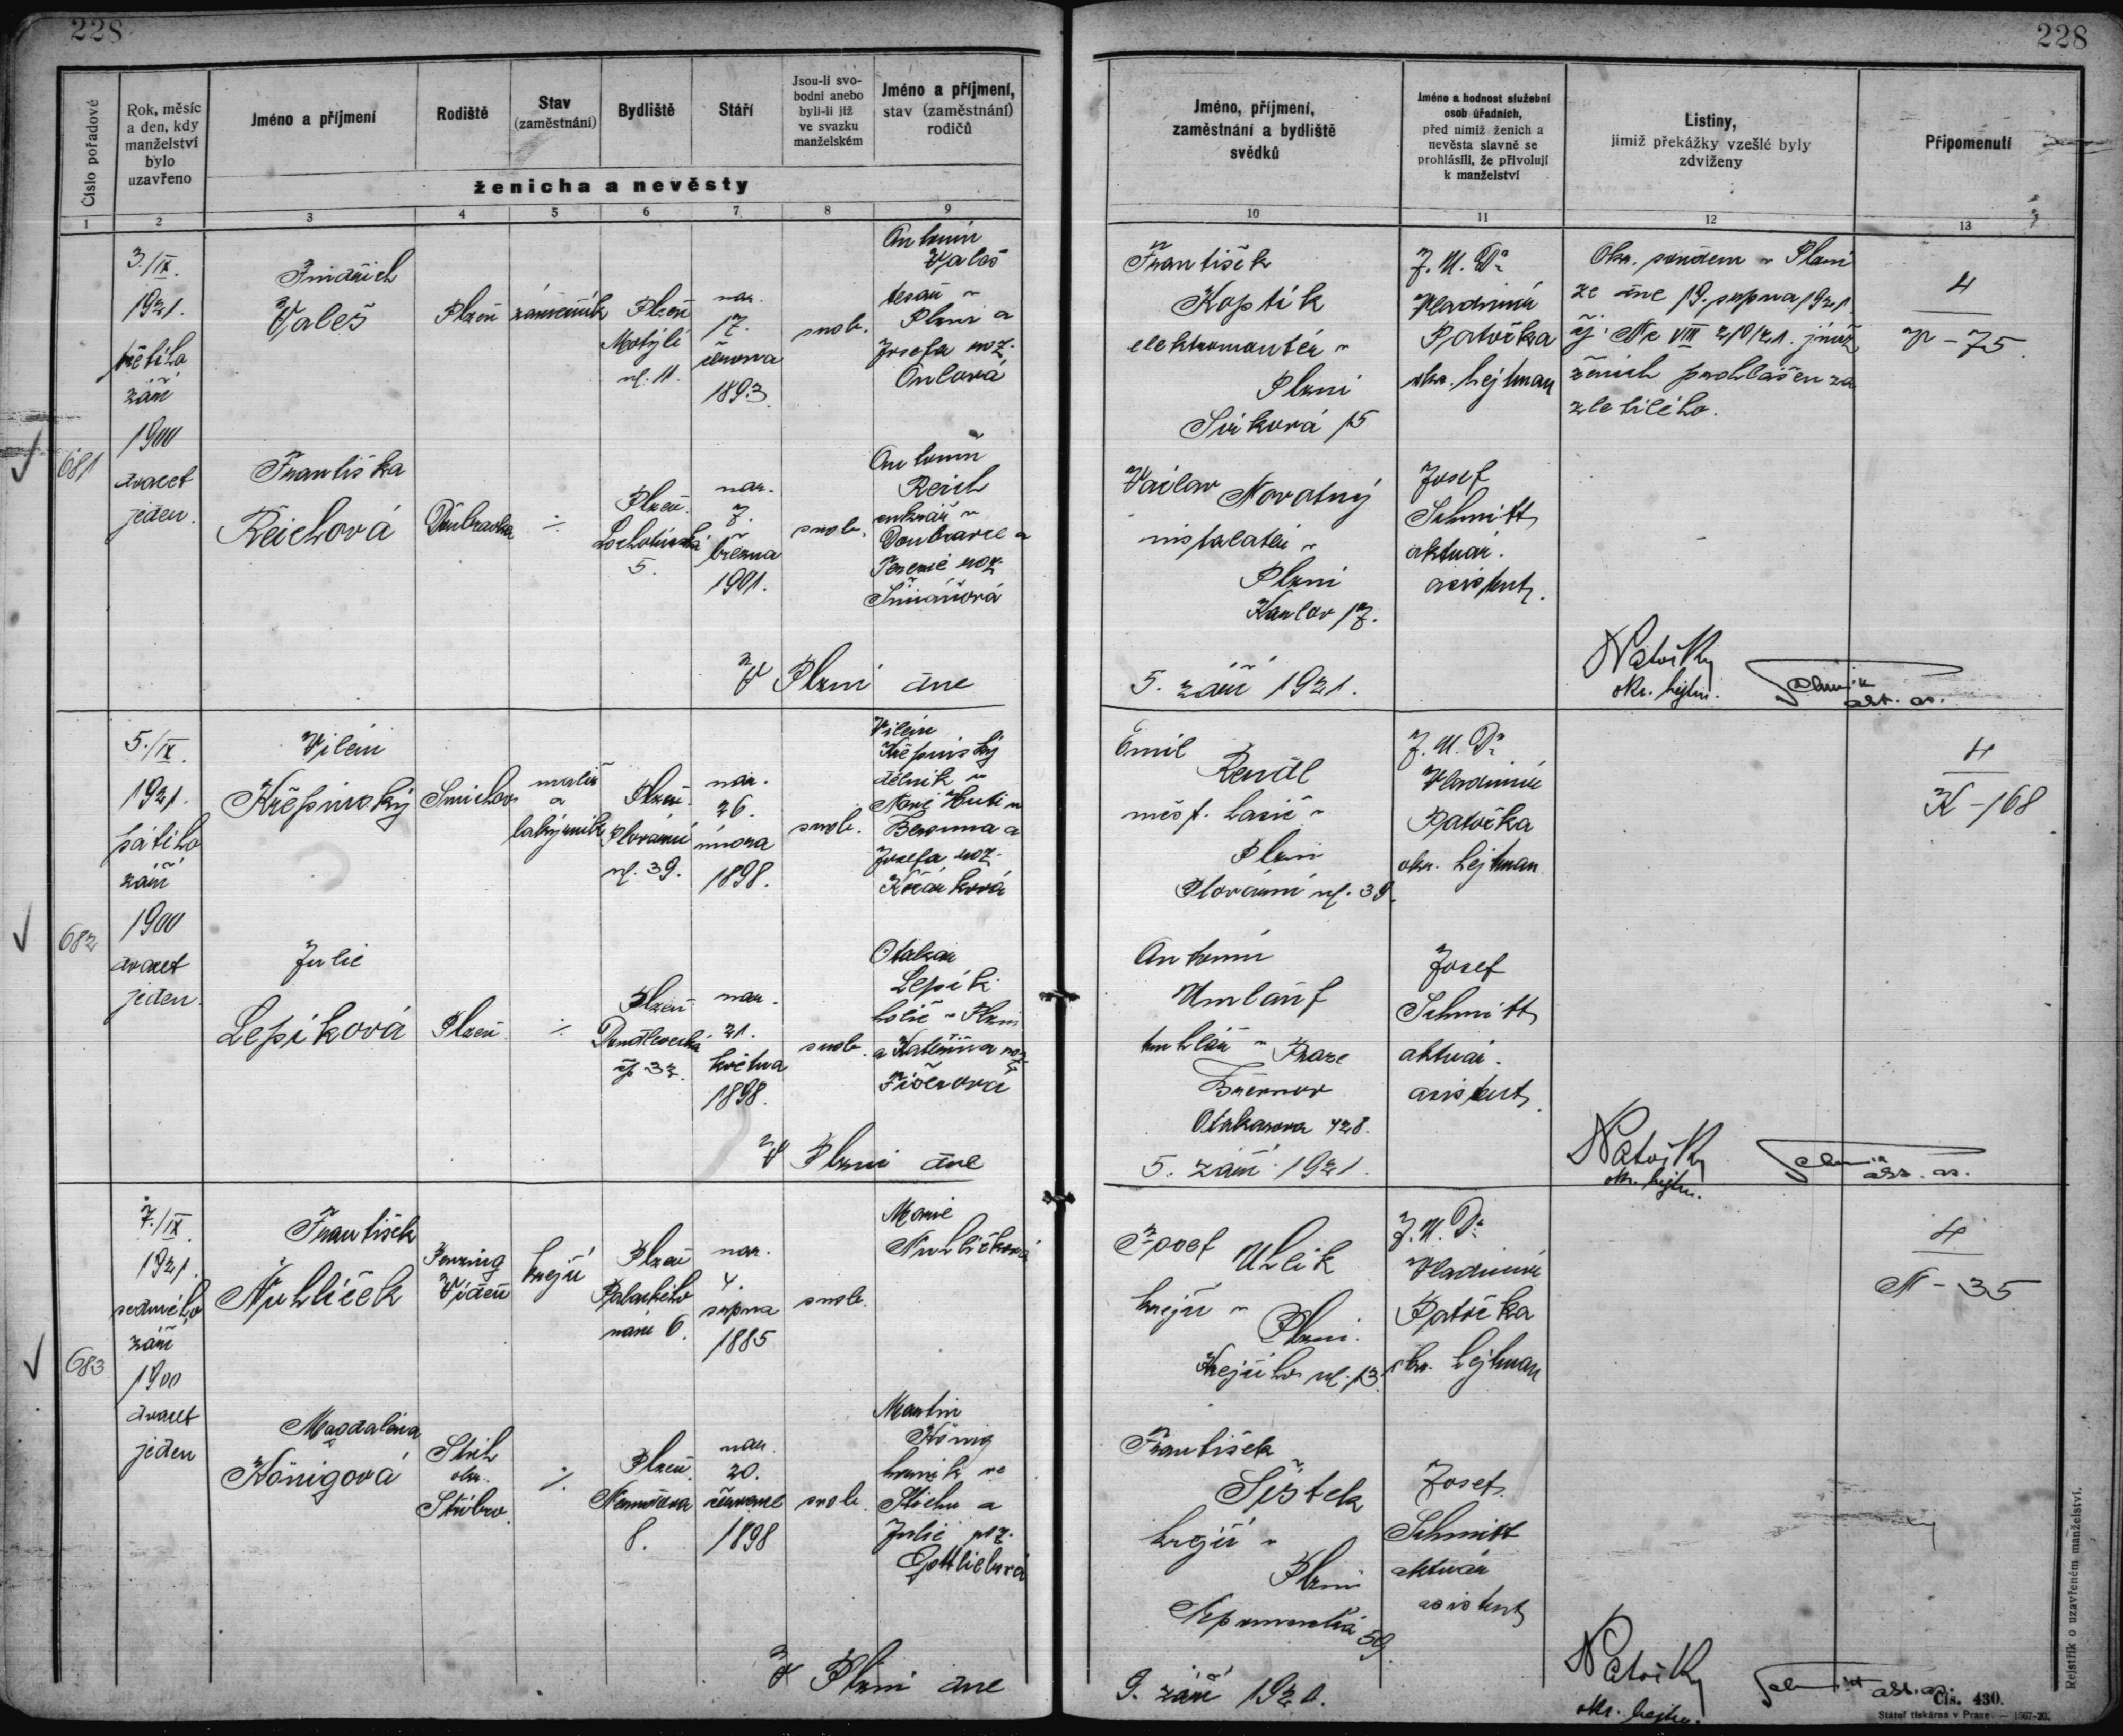 228
228
Číslo pořadové
Rok, měsíc
a den, kdy
manželství
bylo
uzavřeno
Jméno a příjmení
Rodiště
Stav
(zaměstnání)
Bydliště
Stáří
Jsou-li svo-
bodni anebo
byli-li již
ve svazku
manželském
Jméno a příjmení,
stav (zaměstnání)
rodičů
ženicha a nevěsty
Jméno, příjmení,
zaměstnání a bydliště
svědků
Jméno a hodnost služební
osob úřadních,
před nimiž ženich a
nevěsta slavně se
prohlásili, že přivolují
k manželství
Listiny,
jimiž překážky vzešlé byly
zdviženy
Připomenutí
1 2 3 4 5 6 7 8 9 10 11 12 13
681
3./IX.
1921.
třetího
září
1900
dvacet
jeden.
Jindřich
Valeš
Plzeň
zámečník
Plzeň
Motýlí
ul. 11.
nar.
17.
června
1893.
svob.
Antonín
Valeš
tesař v
Plzni a
Josefa roz.
František
Koptík
elektromontér v
Plzni
Sirková 15
J. U. Dr
Vladimír
Patočka
okr. hejtman
Okr. soudem v Plzni
ze dne 19. srpna 1921
čj. Nc VIII 210/21. jímž
ženich prohlášen za
zletilého.
4
V - 75.
Františka
Reichová
Doubravka
÷
Plzeň
Lochotínská
5.
nar.
7.
března
1901.
svob.
Antonín
Reich
v
Doubravce a
Terezie roz.
Šimánová
Václav Novotný
instalatér v
Plzni
Karlov 17.
Josef
Schmitt
aktuár.
asistent.
V Plzni dne
5. září 1921.
Patočka
okr. hejtm.
Schmitt
akt. as.
682
5./IX.
1921.
pátého
září
1900
dvacet
jeden.
Vilém
Křepinský
Smíchov
malíř
a
lakýrník
Plzeň
Plovární
ul. 39.
nar.
26.
února
1898.
svob.
Vilém
Křepinský
dělník v
Nové Huti u
Berouna a
Josefa roz.
Kočárková
Emil
Rendl
měst. hasič v
Plzni
Plovární ul. 39.
J. U. Dr
Vladimír
Patočka
okr. hejtman
4
K - 168
Julie
Lepíková
Plzeň
÷
Plzeň
Doudlevecká
čp 32.
nar.
21.
května
1898.
svob.
Otakar
Lepík
holič v Plzni
a Kateřina roz.
Antonín
Umlauf
truhlář v Praze
Břevnov
Otakarova 428.
Josef
Schmitt
aktuár.
asistent.
V Plzni dne
5. září 1921.
Patočka
okr. hejtm.
Schmitt
akt. as.
683
7./IX.
1921.
sedmého
září
1900
dvacet
jeden
František
Nuhlíček
Penzing
Vídeň
krejčí
Plzeň
Palackého
nám 6.
nar.
4.
srpna
1885
svob.
Marie
Nuhlíčková
Josef Uhlík
krejčí v
Plzni.
Krejčího ul. 13.
J. U. Dr
Vladimír
Patočka
okr. hejtman
4
N - 35
Magdaléna
Königová
okr.
Stříbro.
÷
Plzeň.
Nerudova
8.
nar.
20.
července
1898
svob.
Martin
König
horník ve
a
Julie roz.
Gottliebová
František
Šístek
krejčí v
Plzni
Nepomucká 59.
Josef
Schmitt
aktuár
asistent
V Plzni dne
9. září 1921.
Patočka
okr. hejtm.
Schmitt
akt. as.
Rejstřík o uzavřeném manželství.
Čís. 430.
Státní tiskárna v Praze. — 1567-20.